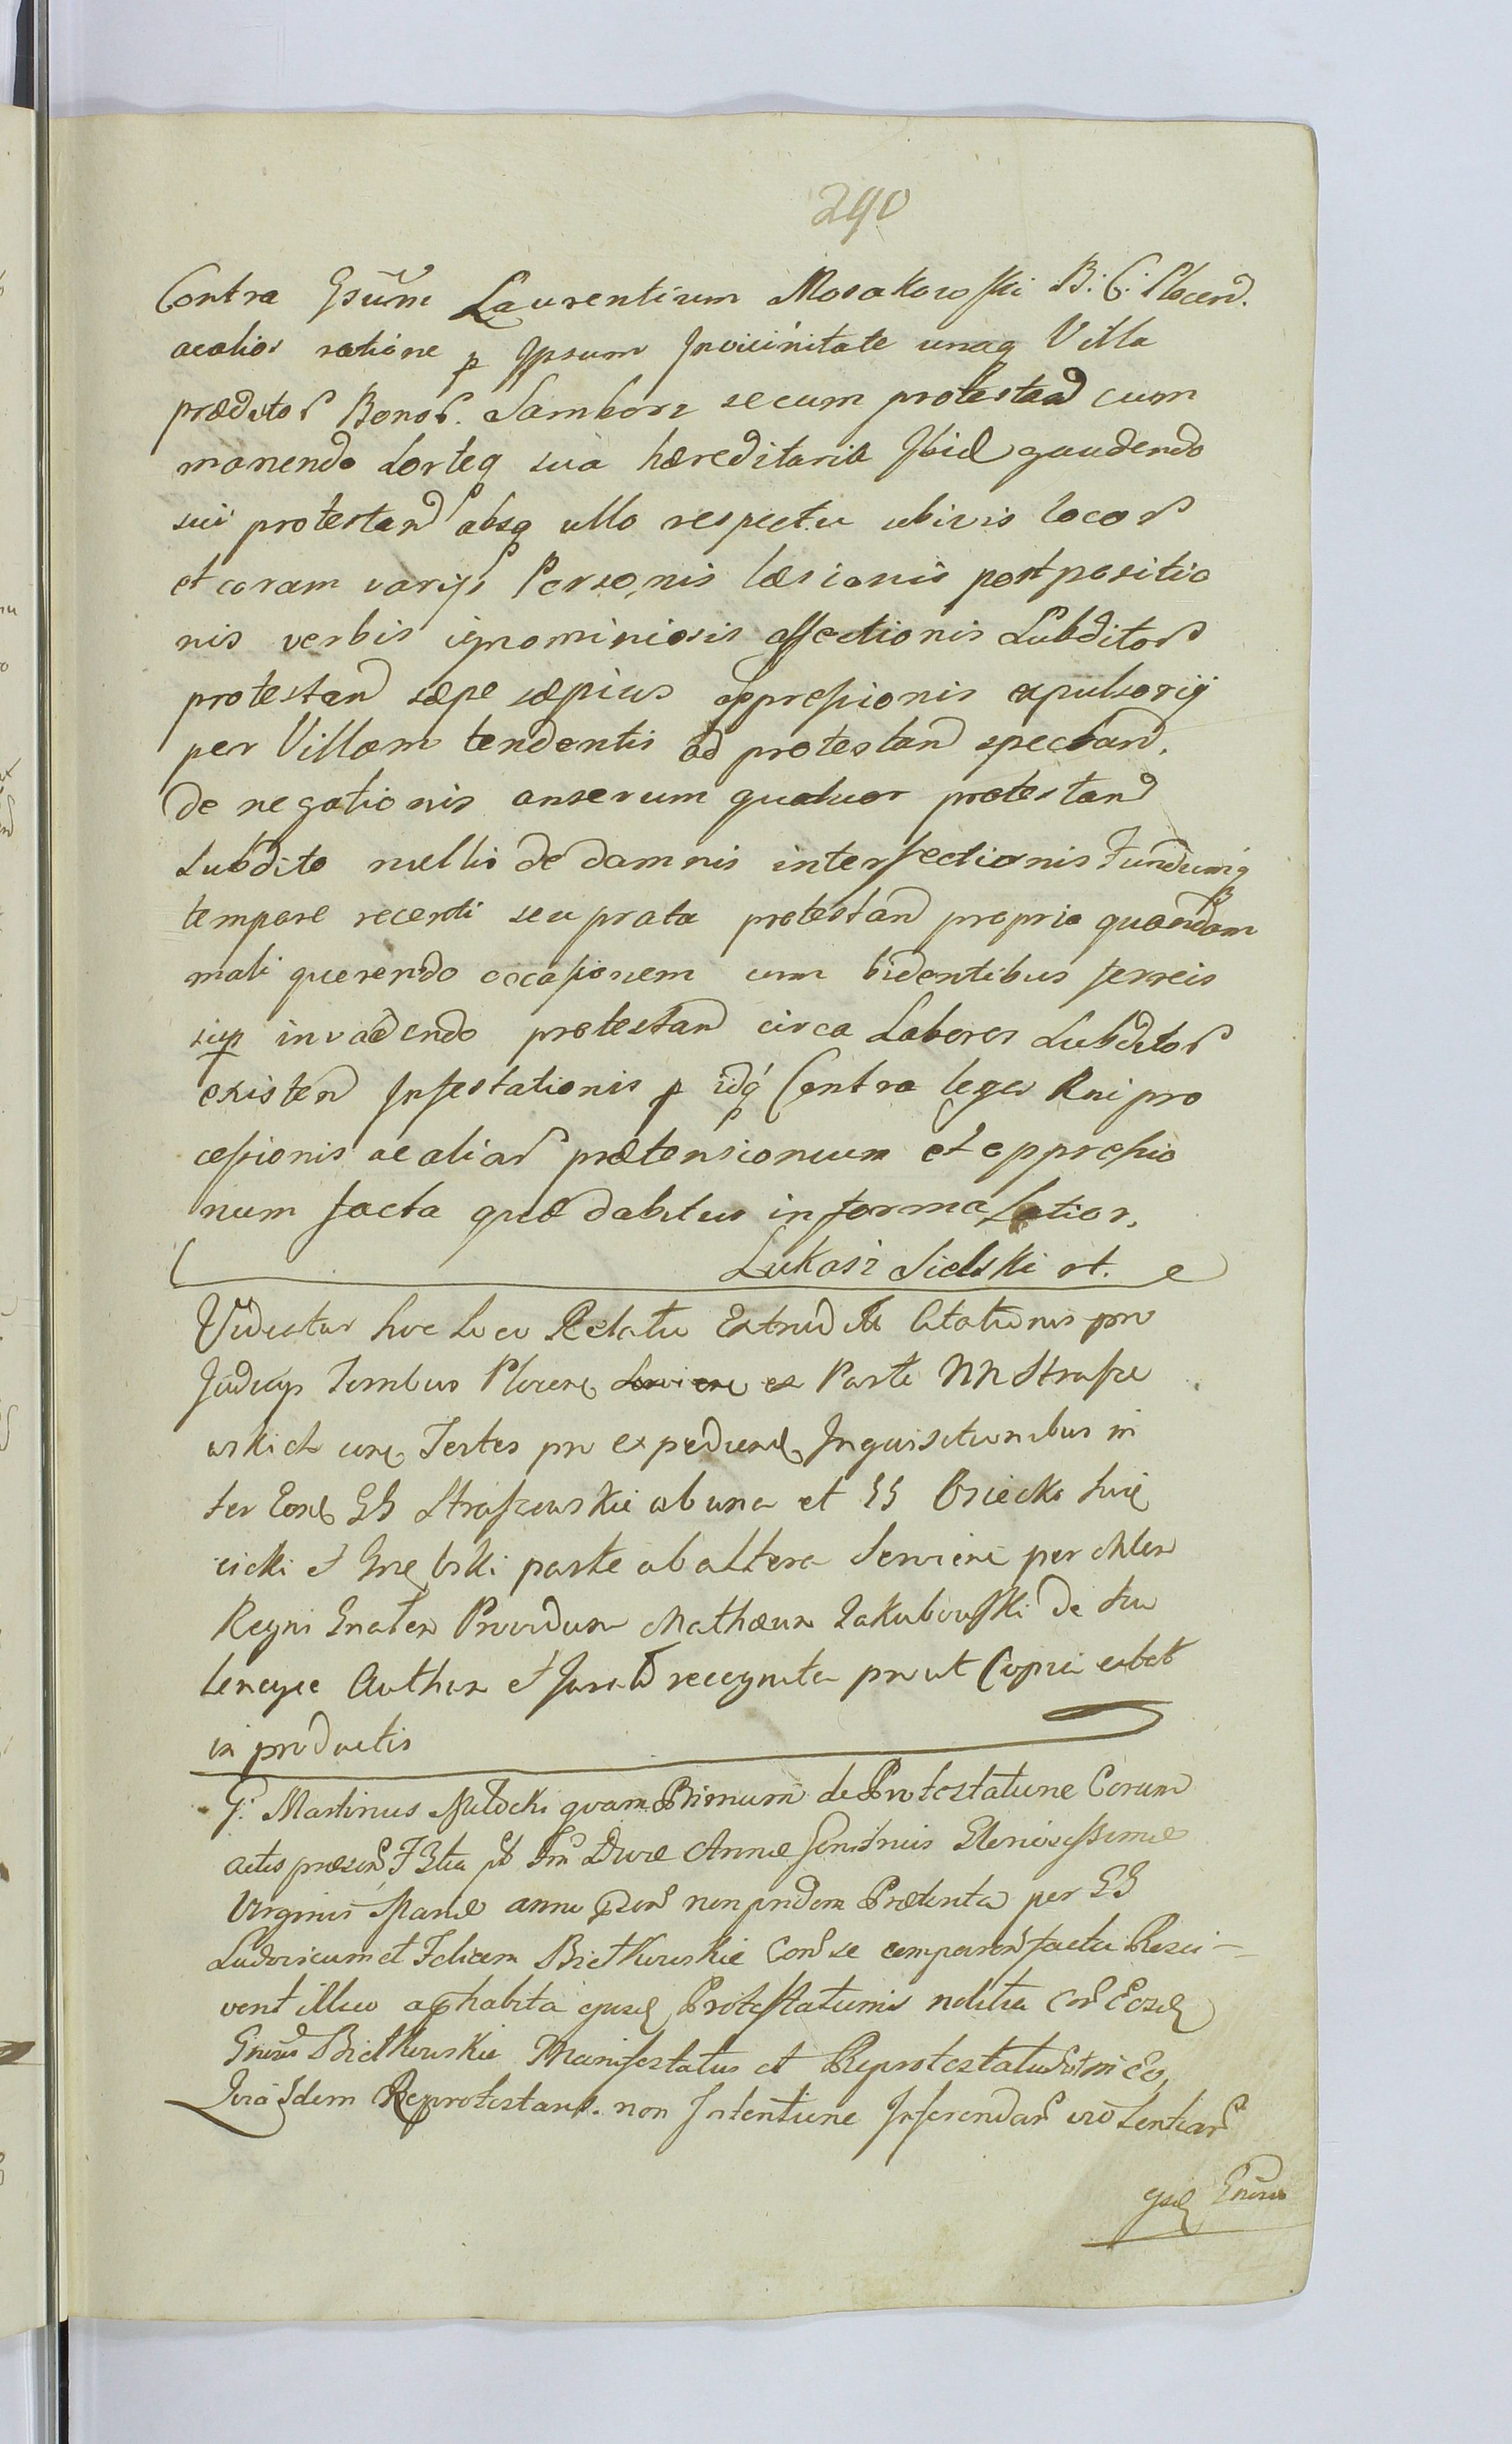 290
Contra Gsum Laurentium Mosakowski B. C. Plocen.
acalios ratione p Ipsum Invicinitate unaq Villa
prædictor Bonor. Samborz secum protestan cum
manendo Sorteq sua hæreditaria Ibid gaudendo
sui protestan absq ullo respectu ubivis locor
et coram varijs Personis læsionis postpositio
nis verbis ignominiosis affectionis Subditor
protestan sæpe sæpius oppressionis expulsorij
per Villam tendentis ad protestan spectan.
de negationis anserum quatuor protestan
Subdito nullis de damnis interfectionis Fundumq
tempore recenti seu prata protestan propria quandam
mali querendo occasionem cum bidentibus ferreis
sup invadendo protestan circa Labores Subditor
existen Infestationis p idq Contra leges Rni pro
cessionis ac aliar prætensionum et oppressio
num facta quæ dabitur in forma Latior.
Lukasz Sielski st.
Videatur hoc Loco Relatio Citationis pro
Judicijs Plocen ex Parte NN Strasze
wskich Testes pro expedien Inquisitionibus in
ter Eosd GG Straszewskie ab una et GG Osiecki
icki et parte ab altera Servien per Mlem
Regni Gnalem Providum Mathæum Jakubowski de Su
Authen et Jurat recognita prout Copia extat
in productis
G. Martinus quam Primum de Protestatione Coram
actis præsen Annæ Genitricis Gloriosissimæ
Virginis Mariæ anno non pridem Prætenta per GG
Ludovicum et Felicem Bietkowskie Con se comparen facta Resci-
verit illico aphabita ejusd Protestationis notitia Con Eosd
Gnrosos Bietkowskie Manifestatus et Reprotestatus Eo,
Quia Idem Reprotestans. non Intentione Inferendar violentiar
Gnroso